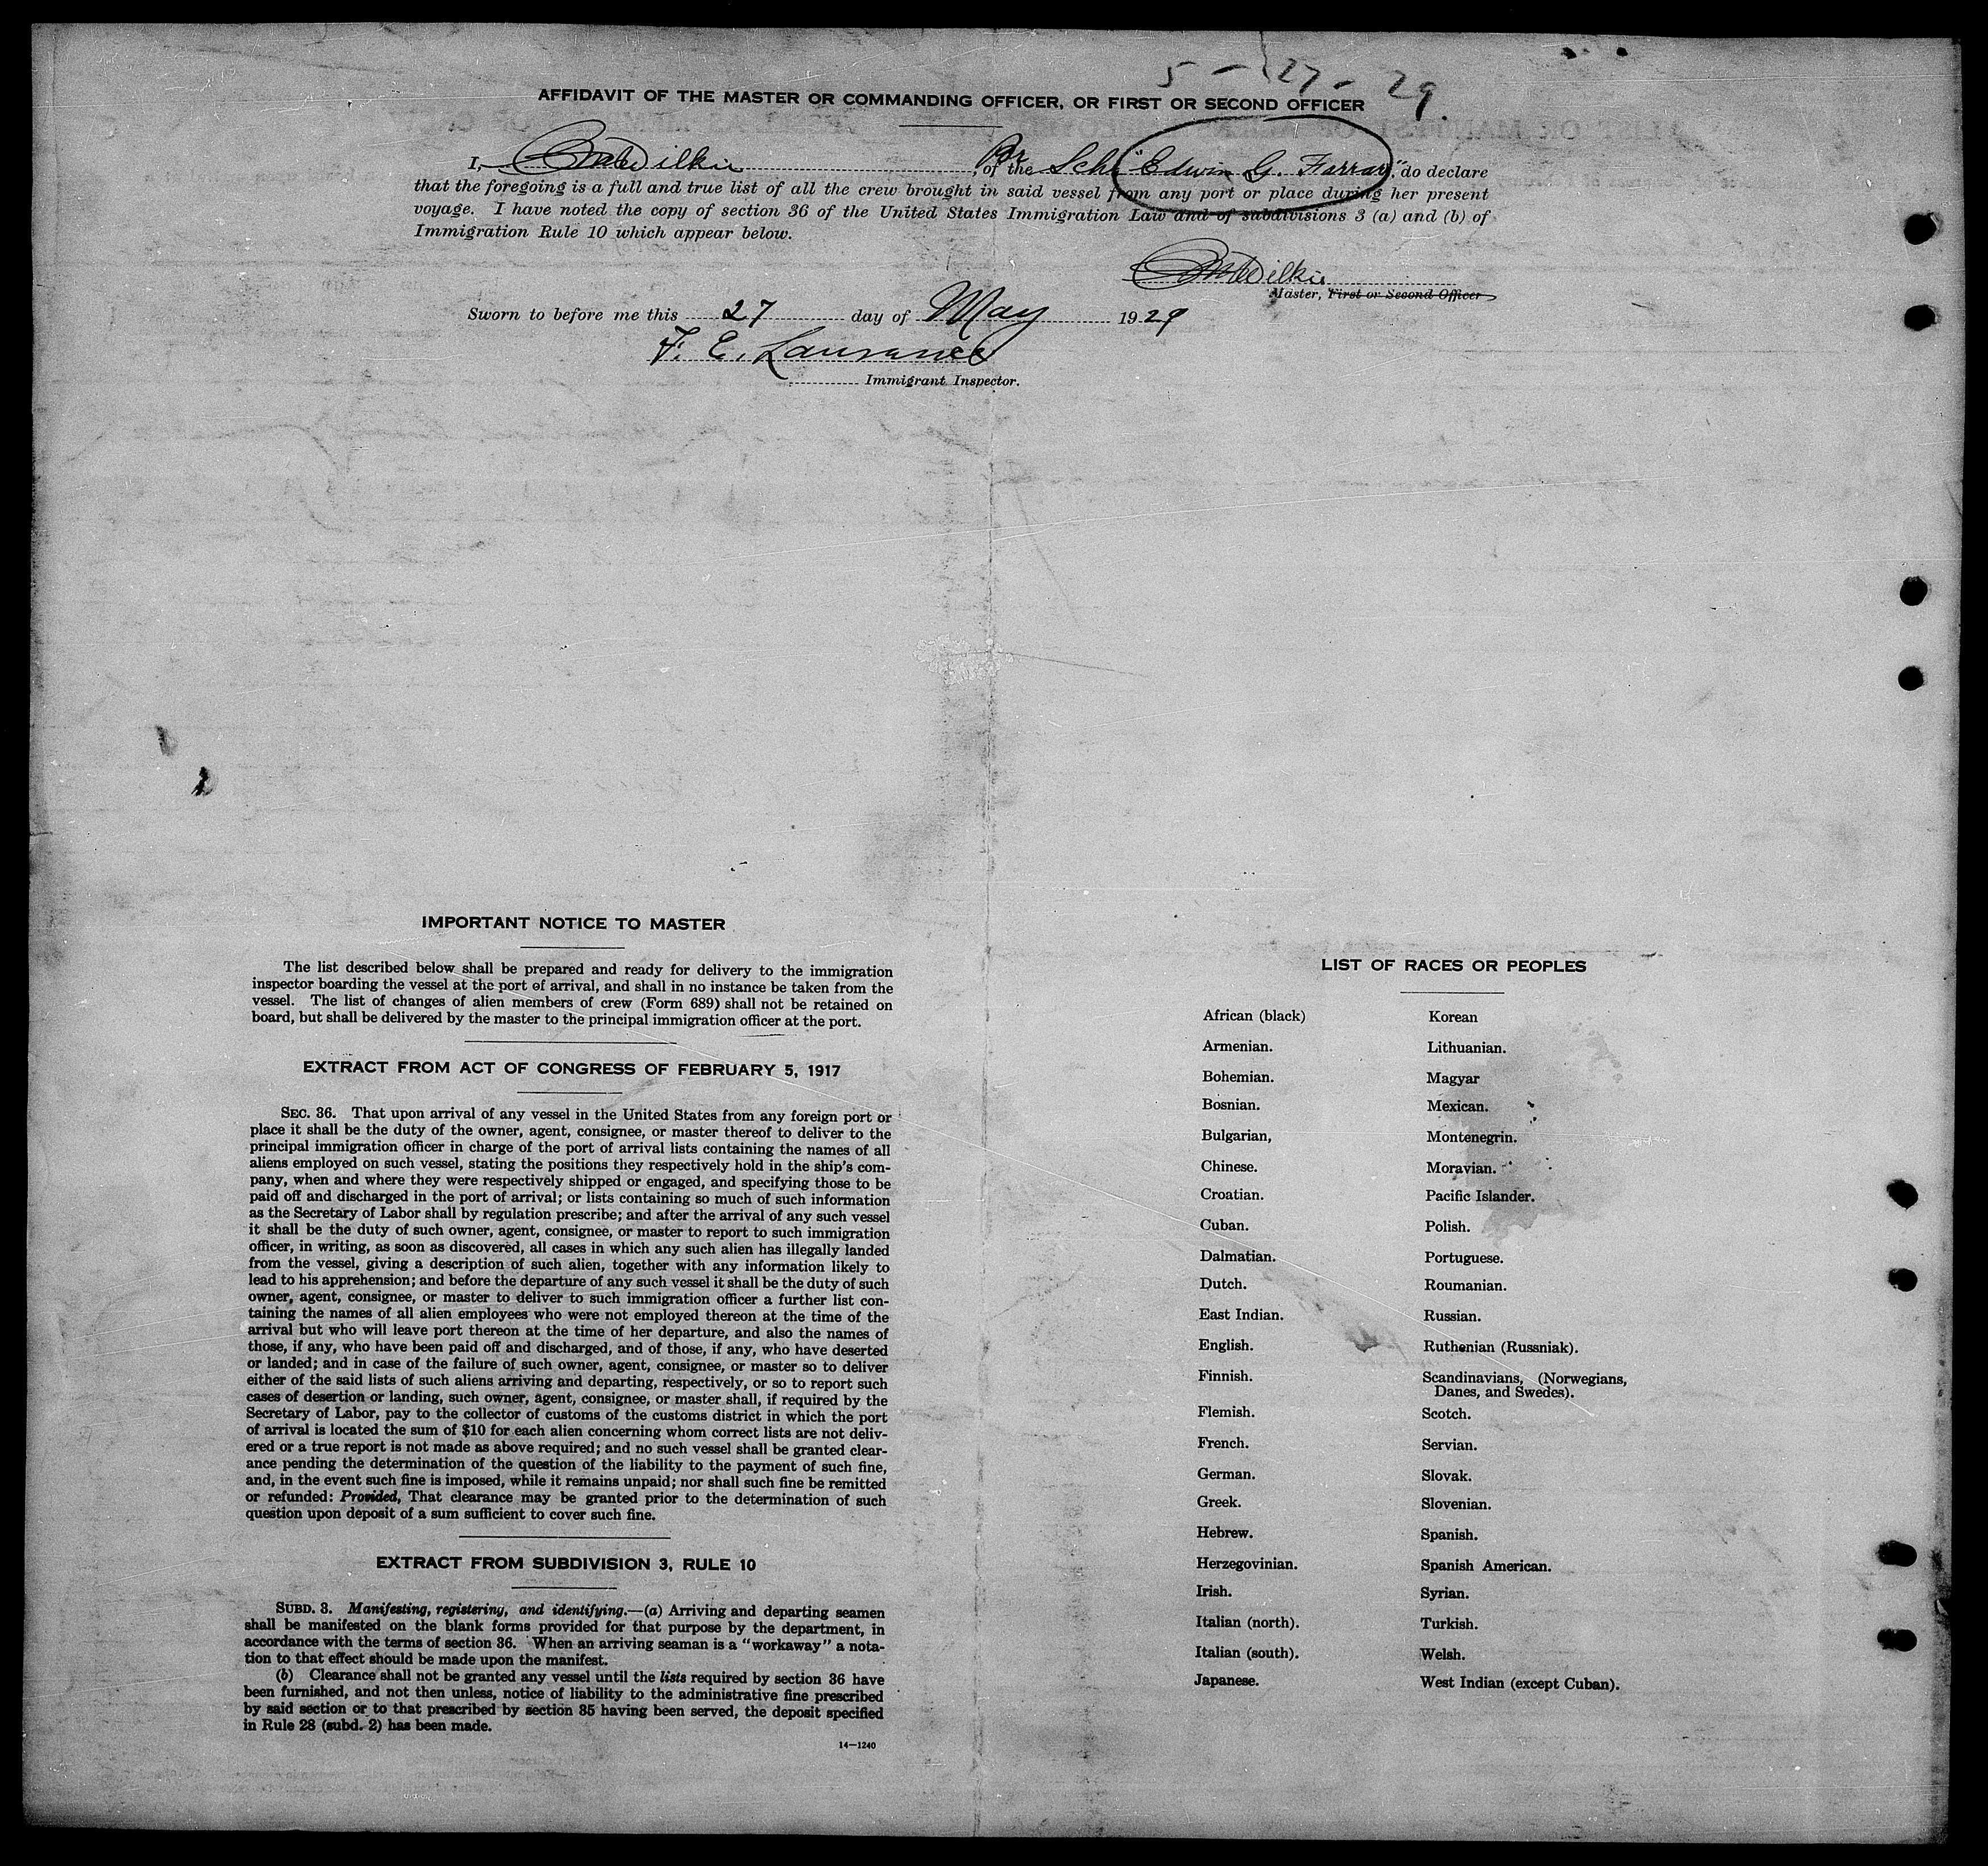 5 - 27 - 29
AFFIDAVIT OF THE MASTER OR COMMANDING OFFICER, OR FIRST OR SECOND OFFICER
I, Wilkie, of the Br Schr "Edwin G. Farrar", do declare
that the foregoing is a full and true list of all the crew brought in said vessel from any port or place during her present
voyage. I have noted the copy of section 36 of the United States Immigration Law and of subdivisions 3 (a) and (b) of
Immigration Rule 10 which appear below.
Wilkie
Master, First or Second Officer
Sworn to before me this 27 day of May 1929
F. E. Lawrance
Immigrant Inspector.
IMPORTANT NOTICE TO MASTER
The list described below shall be prepared and ready for delivery to the immigration
inspector boarding the vessel at the port of arrival, and shall in no instance be taken from the
vessel. The list of changes of alien members of crew (Form 689) shall not be retained on
board, but shall be delivered by the master to the principal immigration officer at the port.
EXTRACT FROM ACT OF CONGRESS OF FEBRUARY 5, 1917
SEC. 36. That upon arrival of any vessel in the United States from any foreign port or
place it shall be the duty of the owner, agent, consignee, or master thereof to deliver to the
principal immigration officer in charge of the port of arrival lists containing the names of all
aliens employed on such vessel, stating the positions they respectively hold in the ship's com-
pany, when and where they were respectively shipped or engaged, and specifying those to be
paid off and discharged in the port of arrival; or lists containing so much of such information
as the Secretary of Labor shall by regulation prescribe; and after the arrival of any such vessel
it shall be the duty of such owner, agent, consignee, or master to report to such immigration
officer, in writing, as soon as discovered, all cases in which any such alien has illegally landed
from the vessel, giving a description of such alien, together with any information likely to
lead to his apprehension; and before the departure of any such vessel it shall be the duty of such
owner, agent, consignee, or master to deliver to such immigration officer a further list con-
taining the names of all alien employees who were not employed thereon at the time of the
arrival but who will leave port thereon at the time of her departure, and also the names of
those, if any, who have been paid off and discharged, and of those, if any, who have deserted
or landed; and in case of the failure of such owner, agent, consignee, or master so to deliver
either of the said lists of such aliens arriving and departing, respectively, or so to report such
cases of desertion or landing, such owner, agent, consignee, or master shall, if required by the
Secretary of Labor, pay to the collector of customs of the customs district in which the port
of arrival is located the sum of $10 for each alien concerning whom correct lists are not deliv-
ered or a true report is not made as above required; and no such vessel shall be granted clear-
ance pending the determination of the question of the liability to the payment of such fine,
and, in the event such fine is imposed, while it remains unpaid; nor shall such fine be remitted
or refunded: Provided, That clearance may be granted prior to the determination of such
question upon deposit of a sum sufficient to cover such fine.
EXTRACT FROM SUBDIVISION 3, RULE 10
SUBD. 3. Manifesting, registering, and identifying.—(a) Arriving and departing seamen
shall be manifested on the blank forms provided for that purpose by the department, in
accordance with the terms of section 36. When an arriving seaman is a "workaway" a nota-
tion to that effect should be made upon the manifest.
(b) Clearance shall not be granted any vessel until the lists required by section 36 have
been furnished, and not then unless, notice of liability to the administrative fine prescribed
by said section or to that prescribed by section 35 having been served, the deposit specified
in Rule 28 (subd. 2) has been made.
14—1240
LIST OF RACES OR PEOPLES
African (black)
Armenian.
Bohemian.
Bosnian.
Bulgarian,
Chinese.
Croatian.
Cuban.
Dalmatian.
Dutch.
East Indian.
English.
Finnish.
Flemish.
French.
German.
Greek.
Hebrew.
Herzegovinian.
Irish.
Italian (north).
Italian (south).
Japanese.
Korean
Lithuanian.
Magyar
Mexican.
Montenegrin.
Moravian.
Pacific Islander.
Polish.
Portuguese.
Roumanian.
Russian.
Ruthenian (Russniak).
Scandinavians, (Norwegians,
Danes, and Swedes).
Scotch.
Servian.
Slovak.
Slovenian.
Spanish.
Spanish American.
Syrian.
Turkish.
Welsh.
West Indian (except Cuban).